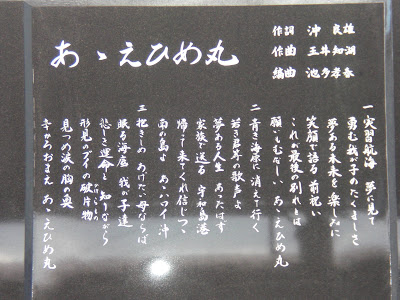 あゝえひめ丸
作詞 沖 良雄
作曲 玉 知湖
編曲 池多孝春
一 実習航海 夢に見て
勇む我が子のたくましさ
夢ある未来を楽しみに
笑顔で語る 前祝い
これが最後の別れとは
願いむなしい あゝえひめ丸
二 青き海原に消えて行く
若き君等の歌声よ
夢ある人生 あったはず
家族で送る 宇和島港
帰って来てくれ信じつつ
南の島よ あゝハワイ沖
三 抱きしめあげたい母ならば
眠る海底 我が子達
悲しき運命と知りながら
形見の の破片物
見つめ涙の胸の奥
辛かろおまえ あゝえひめ丸